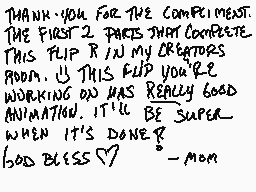 THANK-YOU FOR THE COMPLIMENT.
THE FIRST 2 PARTS THAT COMPLETE
THIS FLIP R IN MY CREATORS
ROOM. THIS FLIP YOU'RE
WORKING ON HAS REALLY GOOD
ANIMATION. IT'LL BE SUPER
WHEN IT'S DONE!
GOD BLESS ♡
- MOM